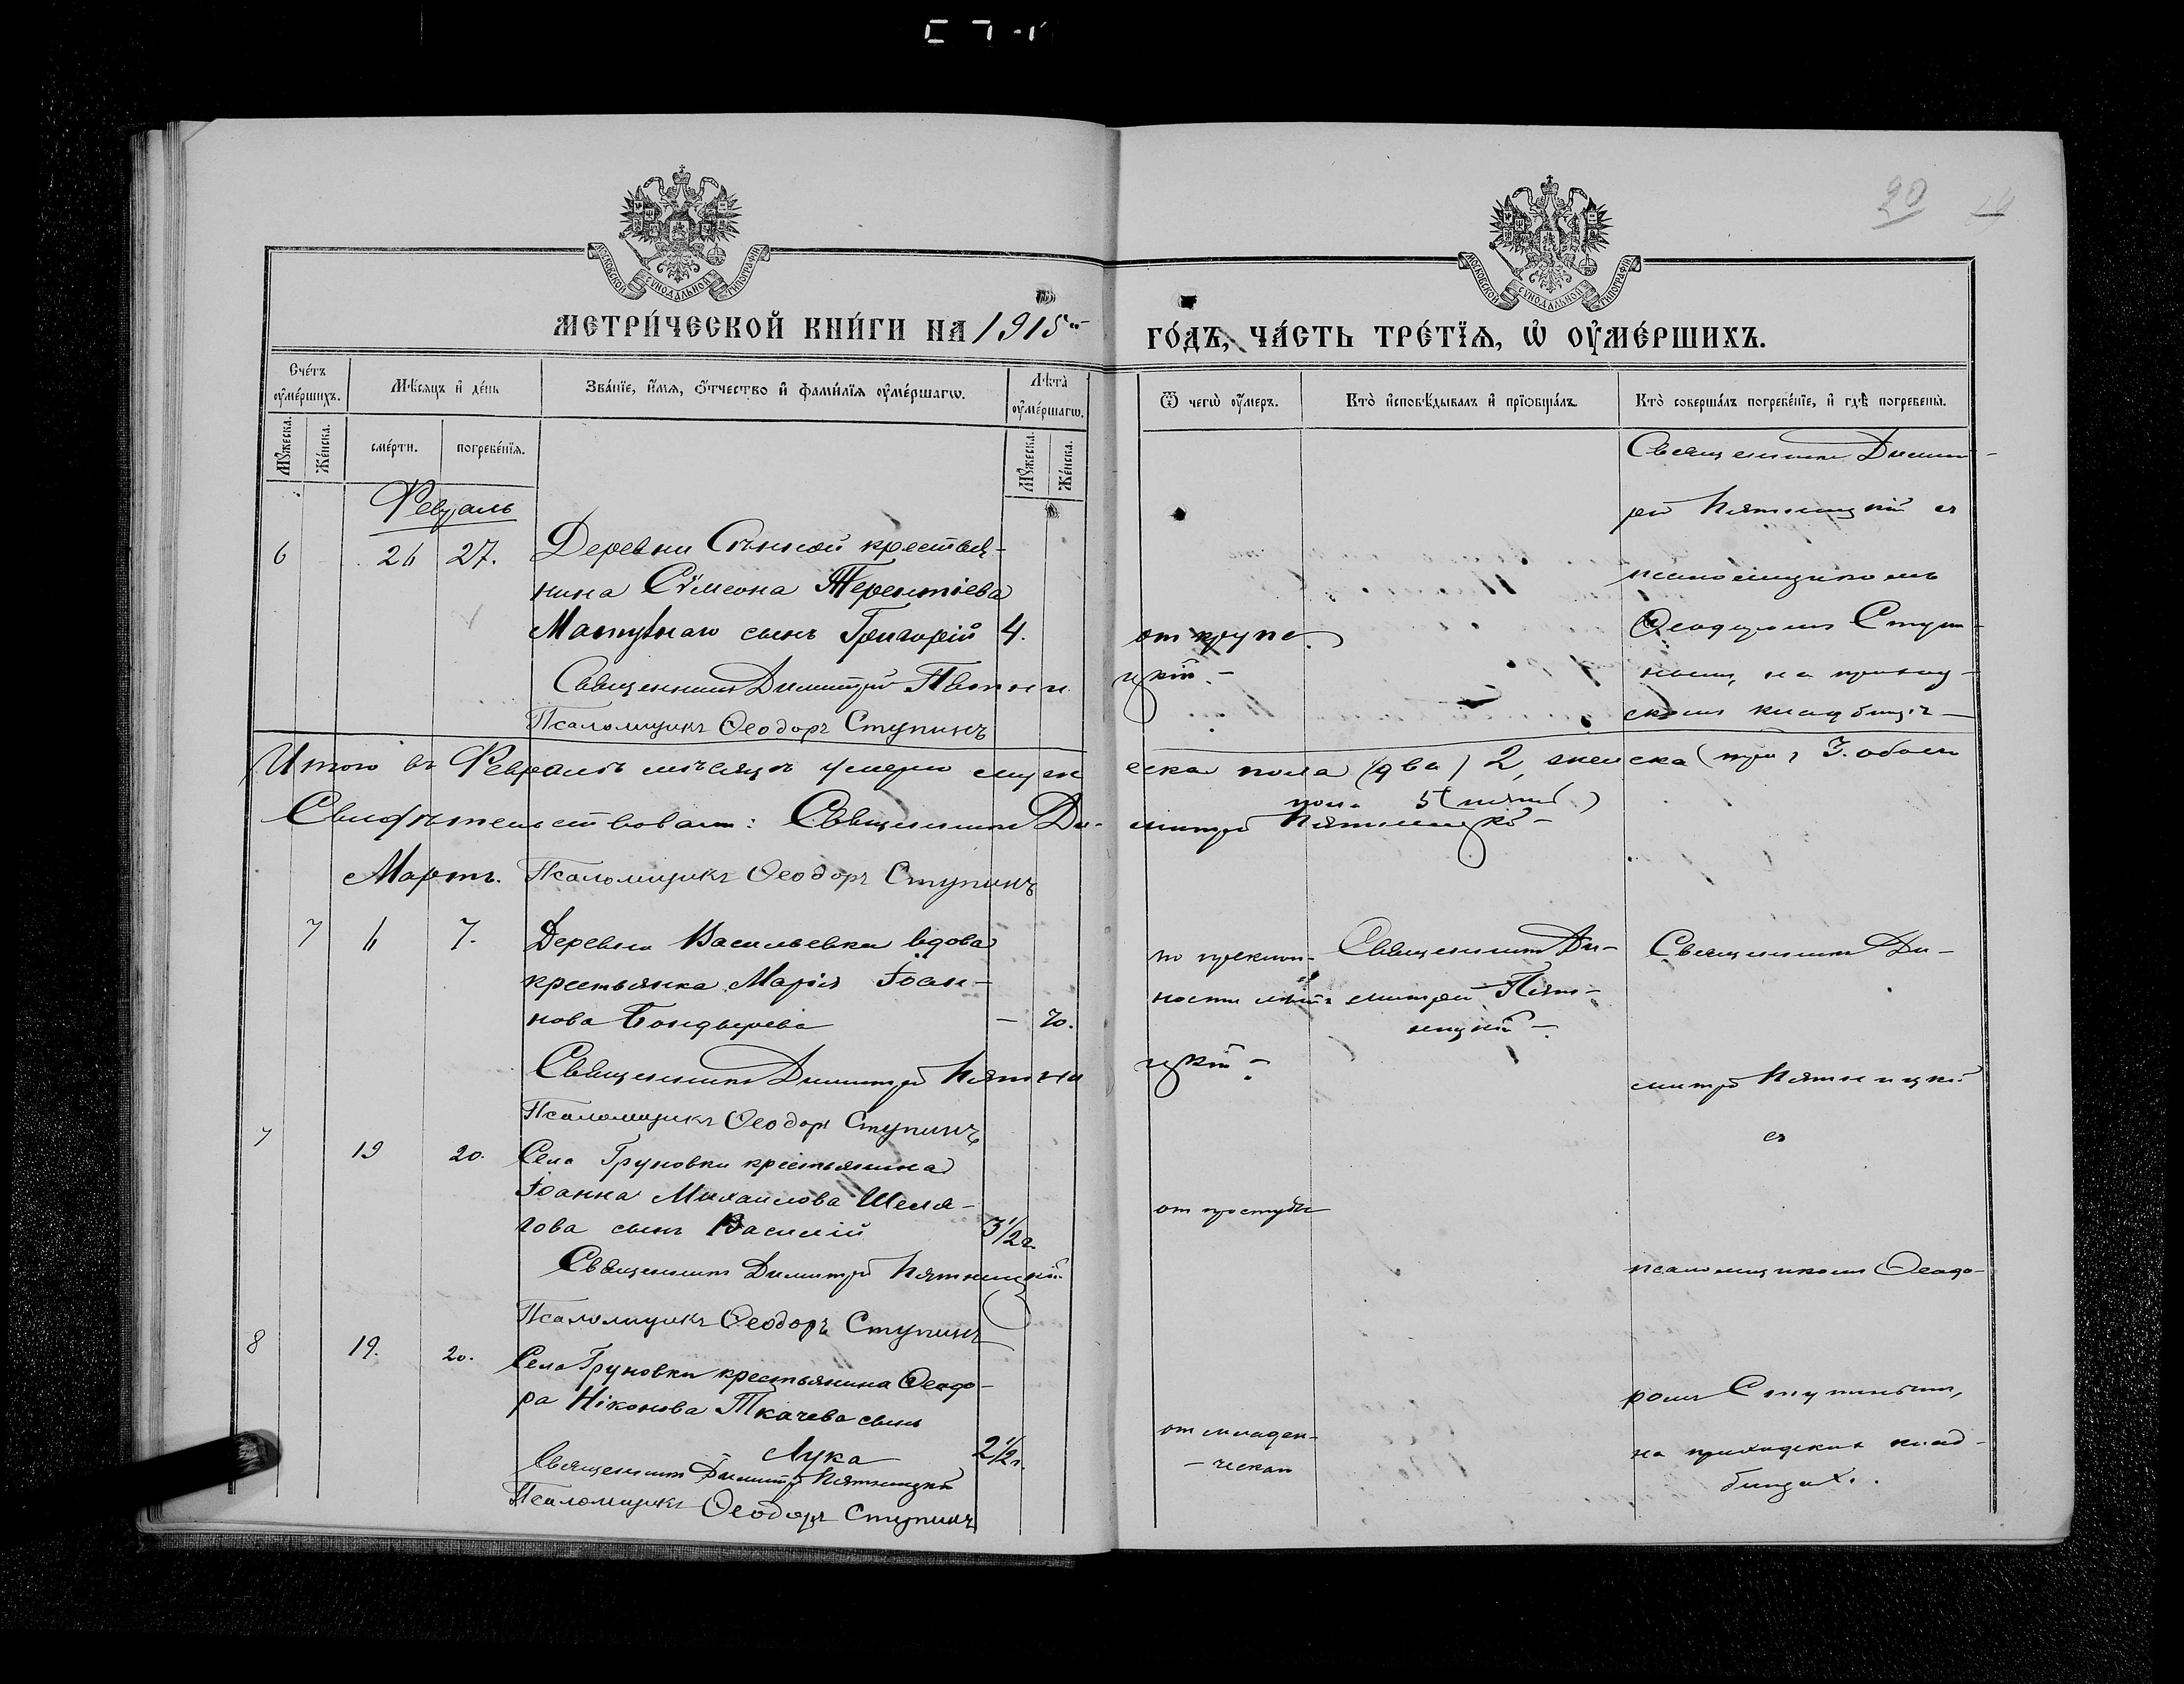 МОСКОВСКОЙ СУНОДАЛЬНОЙ ТИПОГРАФІИ
МОСКОВСКОЙ СУНОДАЛЬНОЙ ТИПОГРАФІИ
20
МЕТРИ́ЧЕСКОЙ КНИ́ГИ НА 1915й
ГО́ДЪ, ЧА́СТЬ ТРЕ́ТЇѦ, Ѡ҆ ОУ҆МЕ́РШИХЪ.
Счéтъ оу҆мéршихъ.
Мꙋ́жеска.
Жéнска.
Мѣ́сяцъ и҆ дéнь
смéрти.
погребéнїя.
Звáнїе, и҆́мя, ѻ҆́тчество и҆ фамѝлїя оу҆мéршагѡ.
Лѣ̑та̀ оу҆мéршагѡ.
Мꙋ́жеска.
Жéнска.
Ѿ чегѡ̀ оу҆́меръ.
Ктò и҆сповѣ́дывалъ и҆ прїѻбщáлъ.
Ктò совершáлъ погребéнїе, и҆ гдѣ̀ погребены̀.
Февраль
6
26
27.
Деревни Сѣнной крестья-
нина Сѵмеона Терентіева
сынъ Григорій
4.
Священникъ Димитрій Пятни
цкій.-
Псаломщикъ Ѳеодоръ Ступинъ
от крупа.
Священникъ Димит-
рій Пятницкій съ
псаломщикомъ
Ѳеодоромъ Ступи-
нымъ, на приход-
скомъ кладбищѣ-
Итого въ Февралѣ мѣсяцѣ умерло муж
еска пола (два) 2, женска (три) 3. обоего
пола 5 (пять)
Свидѣтельствовали: Священникъ Ди-
митрій Пятницкій-
Мартъ.
Псаломщикъ Ѳеодоръ Ступинъ
7
6
7.
Деревни Васильевки вдова
крестьянка Марія Іоан-
нова Бондырева
-
70.
Священникъ Димитрій Пятни
цкій-
Псаломщикъ Ѳеодоръ Ступинъ
по преклон-
ности лѣтъ
Священникъ Ди-
митрій Пят-
ницкій-
Священникъ Ди-
митрій Пятницкій
съ
7
19
20.
Села Груновки крестьянина
Іоанна Михаилова Шеля-
гова сынъ Василій
3 1/2 г.
Священникъ Димитрій Пятницкій
Псаломщикъ Ѳеодоръ Ступинъ
от простуды
псаломщикомъ Ѳеодо-
8
19.
20.
Села Груновки крестьянина Ѳеодо-
ра Ніконова Ткачева сынъ
Лука
2 1/2 г.
Священникъ Димитрій Пятницкій
Псаломщикъ Ѳеодоръ Ступинъ
от младен-
-ческой
ромъ Ступинымъ,
на приходскихъ клад-
бищахъ.